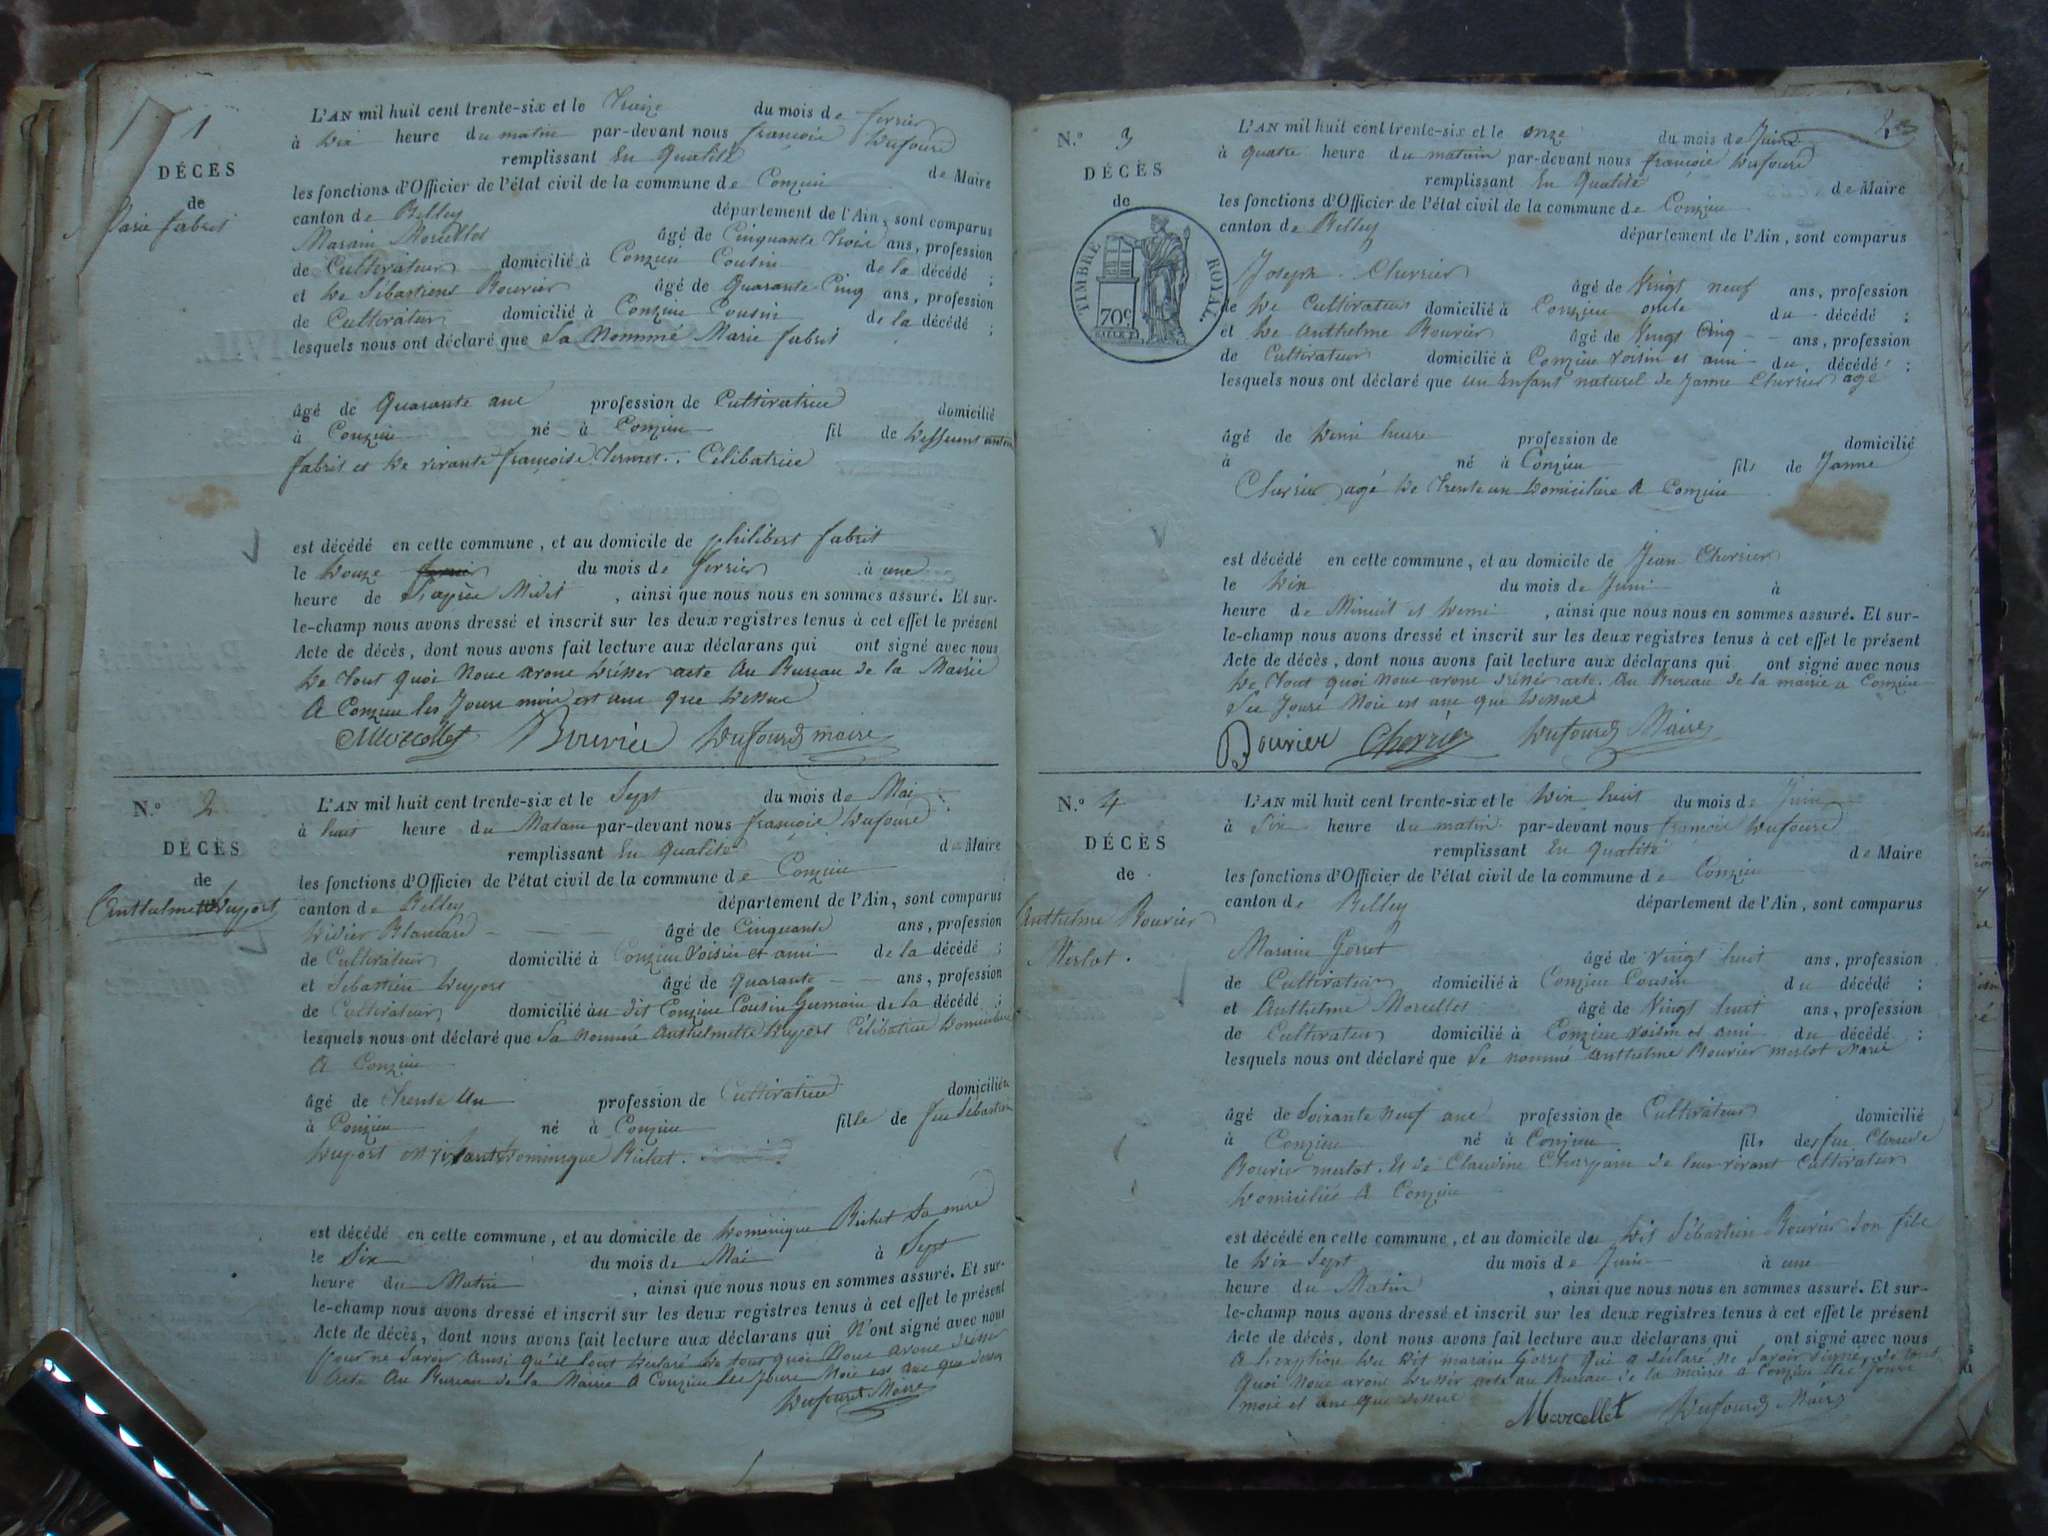 1
DÉCÈS
de
Marie fabrit
L'AN mil huit cent trente-six et le Treize du mois de fevrier
à Dix heure du matin par-devant nous françois Dufourd
remplissant En Qualité de Maire
les fonctions d'Officier de l'état civil de la commune de Conzieu
canton de Belley département de l'Ain, sont comparus
Marain Morcellet âgé de Cinquante Trois ans, profession
de Cultivateur domicilié à Conzieu Cousin de la décédé ;
et De Sébastiens Bouvier âgé de Quarante-Cinq ans, profession
de Cultivateur domicilié à Conzieu Cousin de la décédé ;
lesquels nous ont déclaré que La Nommé Marie fabrit
âgé de Quarante ans profession de Cultivatrice domicilié
à Conzieu né à Conzieu fil de Deffunt
fabrit et De vivante françoise Célibatrice
est décédé en cette commune, et au domicile de philibert fabrit
le Douze du mois de fevrier à une
heure de L'après Midit, ainsi que nous nous en sommes assuré. Et sur-
le-champ nous avons dressé et inscrit sur les deux registres tenus à cet effet le présent
Acte de décès, dont nous avons fait lecture aux déclarans qui ont signé avec nous
De Tout quoi Nous avons Drésser acte Au Bureau de la Mairie
A Conzieu les Jours mois est ans que Dessus
Morcellet Bouvier Dufourd maire
N.° 2
DÉCÈS
de
Anthelmette Duport
L'AN mil huit cent trente-six et le Sept du mois de Mai
à huit heure du Matain par-devant nous françois Dufourd
remplissant En Qualité de Maire
les fonctions d'Officier de l'état civil de la commune de Conzieu
canton de Belley département de l'Ain, sont comparus
Didier Blanchard âgé de Cinquante ans, profession
de Cultivateur domicilié à Conzieu Voisin et ami de la décédé ;
et Sébastien Duport âgé de Quarante ans, profession
de Cultivateur domicilié au dit Conzieu Cousin Germain de la décédé ;
lesquels nous ont déclaré que La nommé Anthelmette Duport Célibatrice Domiciliée
A Conzieu
âgé de Trente Un profession de Cultivatrice domiciliée
à Conzieu né à Conzieu fille de feu Sébastien
Duport et vivante Dominique Richet.
est décédé en cette commune, et au domicile de Dominique Richet Sa mere
le Six du mois de Mai à Sept
heure du Matin, ainsi que nous nous en sommes assuré. Et sur-
le-champ nous avons dressé et inscrit sur les deux registres tenus à cet effet le présent
Acte de décès, dont nous avons fait lecture aux déclarans qui N'ont signé avec nous
Pour ne Savoir Ainsi qu'il l'ont Déclaré De tout quoi Nous avons Drésser
Acte Au Bureau de la Mairie A Conzieu Les Jours Mois est ans que Dessus
Dufourd Maire
N.° 3
DÉCÈS
de
TIMBRE ROYAL.
70c
L'AN mil huit cent trente-six et le onze du mois de Juin
à quatre heure du matain par-devant nous françois Dufourd
remplissant En Qualité de Maire
les fonctions d'Officier de l'état civil de la commune de Conzieu
canton de Belley département de l'Ain, sont comparus
Joseph Cherrier âgé de Vingt neuf ans, profession
de De Cultivateur domicilié à Conzieu oncle du décédé ;
et De Anthelme Bouvier âgé de Vingt Cinq ans, profession
de Cultivateur domicilié à Conzieu voisin et ami du décédé ;
lesquels nous ont déclaré que un Enfant naturel de Janne Cherrier agé
âgé de Demi heure profession de domicilié
à né à Conzieu fils de Janne
Cherrier agé De Trente un Domiciliée A Conzieu
est décédé en cette commune, et au domicile de Jean Cherrier
le Dix du mois de Juin à
heure de Minuit et Demi, ainsi que nous nous en sommes assuré. Et sur-
le-champ nous avons dressé et inscrit sur les deux registres tenus à cet effet le présent
Acte de décès, dont nous avons fait lecture aux déclarans qui ont signé avec nous
De Tout quoi Nous avons drésser acte. Au Bureau de la mairie a Conzieu
Les Jours Mois est ans que Dessus
Bouvier Cherrier Dufourd Maire
N.° 4
DÉCÈS
de
Anthelme Bouvier
Merlot.
L'AN mil huit cent trente-six et le Dix huit du mois de Juin
à Six heure du matin par-devant nous françois Dufourd
remplissant En Qualité de Maire
les fonctions d'Officier de l'état civil de la commune de Conzieu
canton de Belley département de l'Ain, sont comparus
Marain Gorret âgé de vingt huit ans, profession
de Cultivateur domicilié à Conzieu Cousin du décédé ;
et Anthelme Morcellet âgé de Vingt huit ans, profession
de Cultivateur domicilié à Conzieu voisin et ami du décédé ;
lesquels nous ont déclaré que Le nommé Anthelme Bouvier merlot Marié
âgé de Soixante Neuf ans profession de Cultivateur domicilié
à Conzieu né à Conzieu fils de feu Claude
Bouvier merlot. Et de Claudine de leur vivant Cultivateur
Domiciliés A Conzieu
est décédé en cette commune, et au domicile du Dit Sébastien Bouvier Son fils
le Dix Sept du mois de Juin à une
heure du Matin, ainsi que nous nous en sommes assuré. Et sur-
le-champ nous avons dressé et inscrit sur les deux registres tenus à cet effet le présent
Acte de décès, dont nous avons fait lecture aux déclarans qui ont signé avec nous
A L'exeption Du Dit marain Gorret Qui a déclaré ne Savoir signé, de tout
Quoi Nous avons Drésser acte au Bureau de la mairie a Conzieu Les Jours
mois et ans que dessus
Morcellet Dufourd Maire